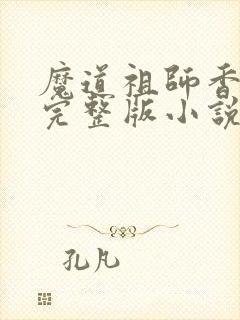 魔道祖師香
完整版小說
孔凡